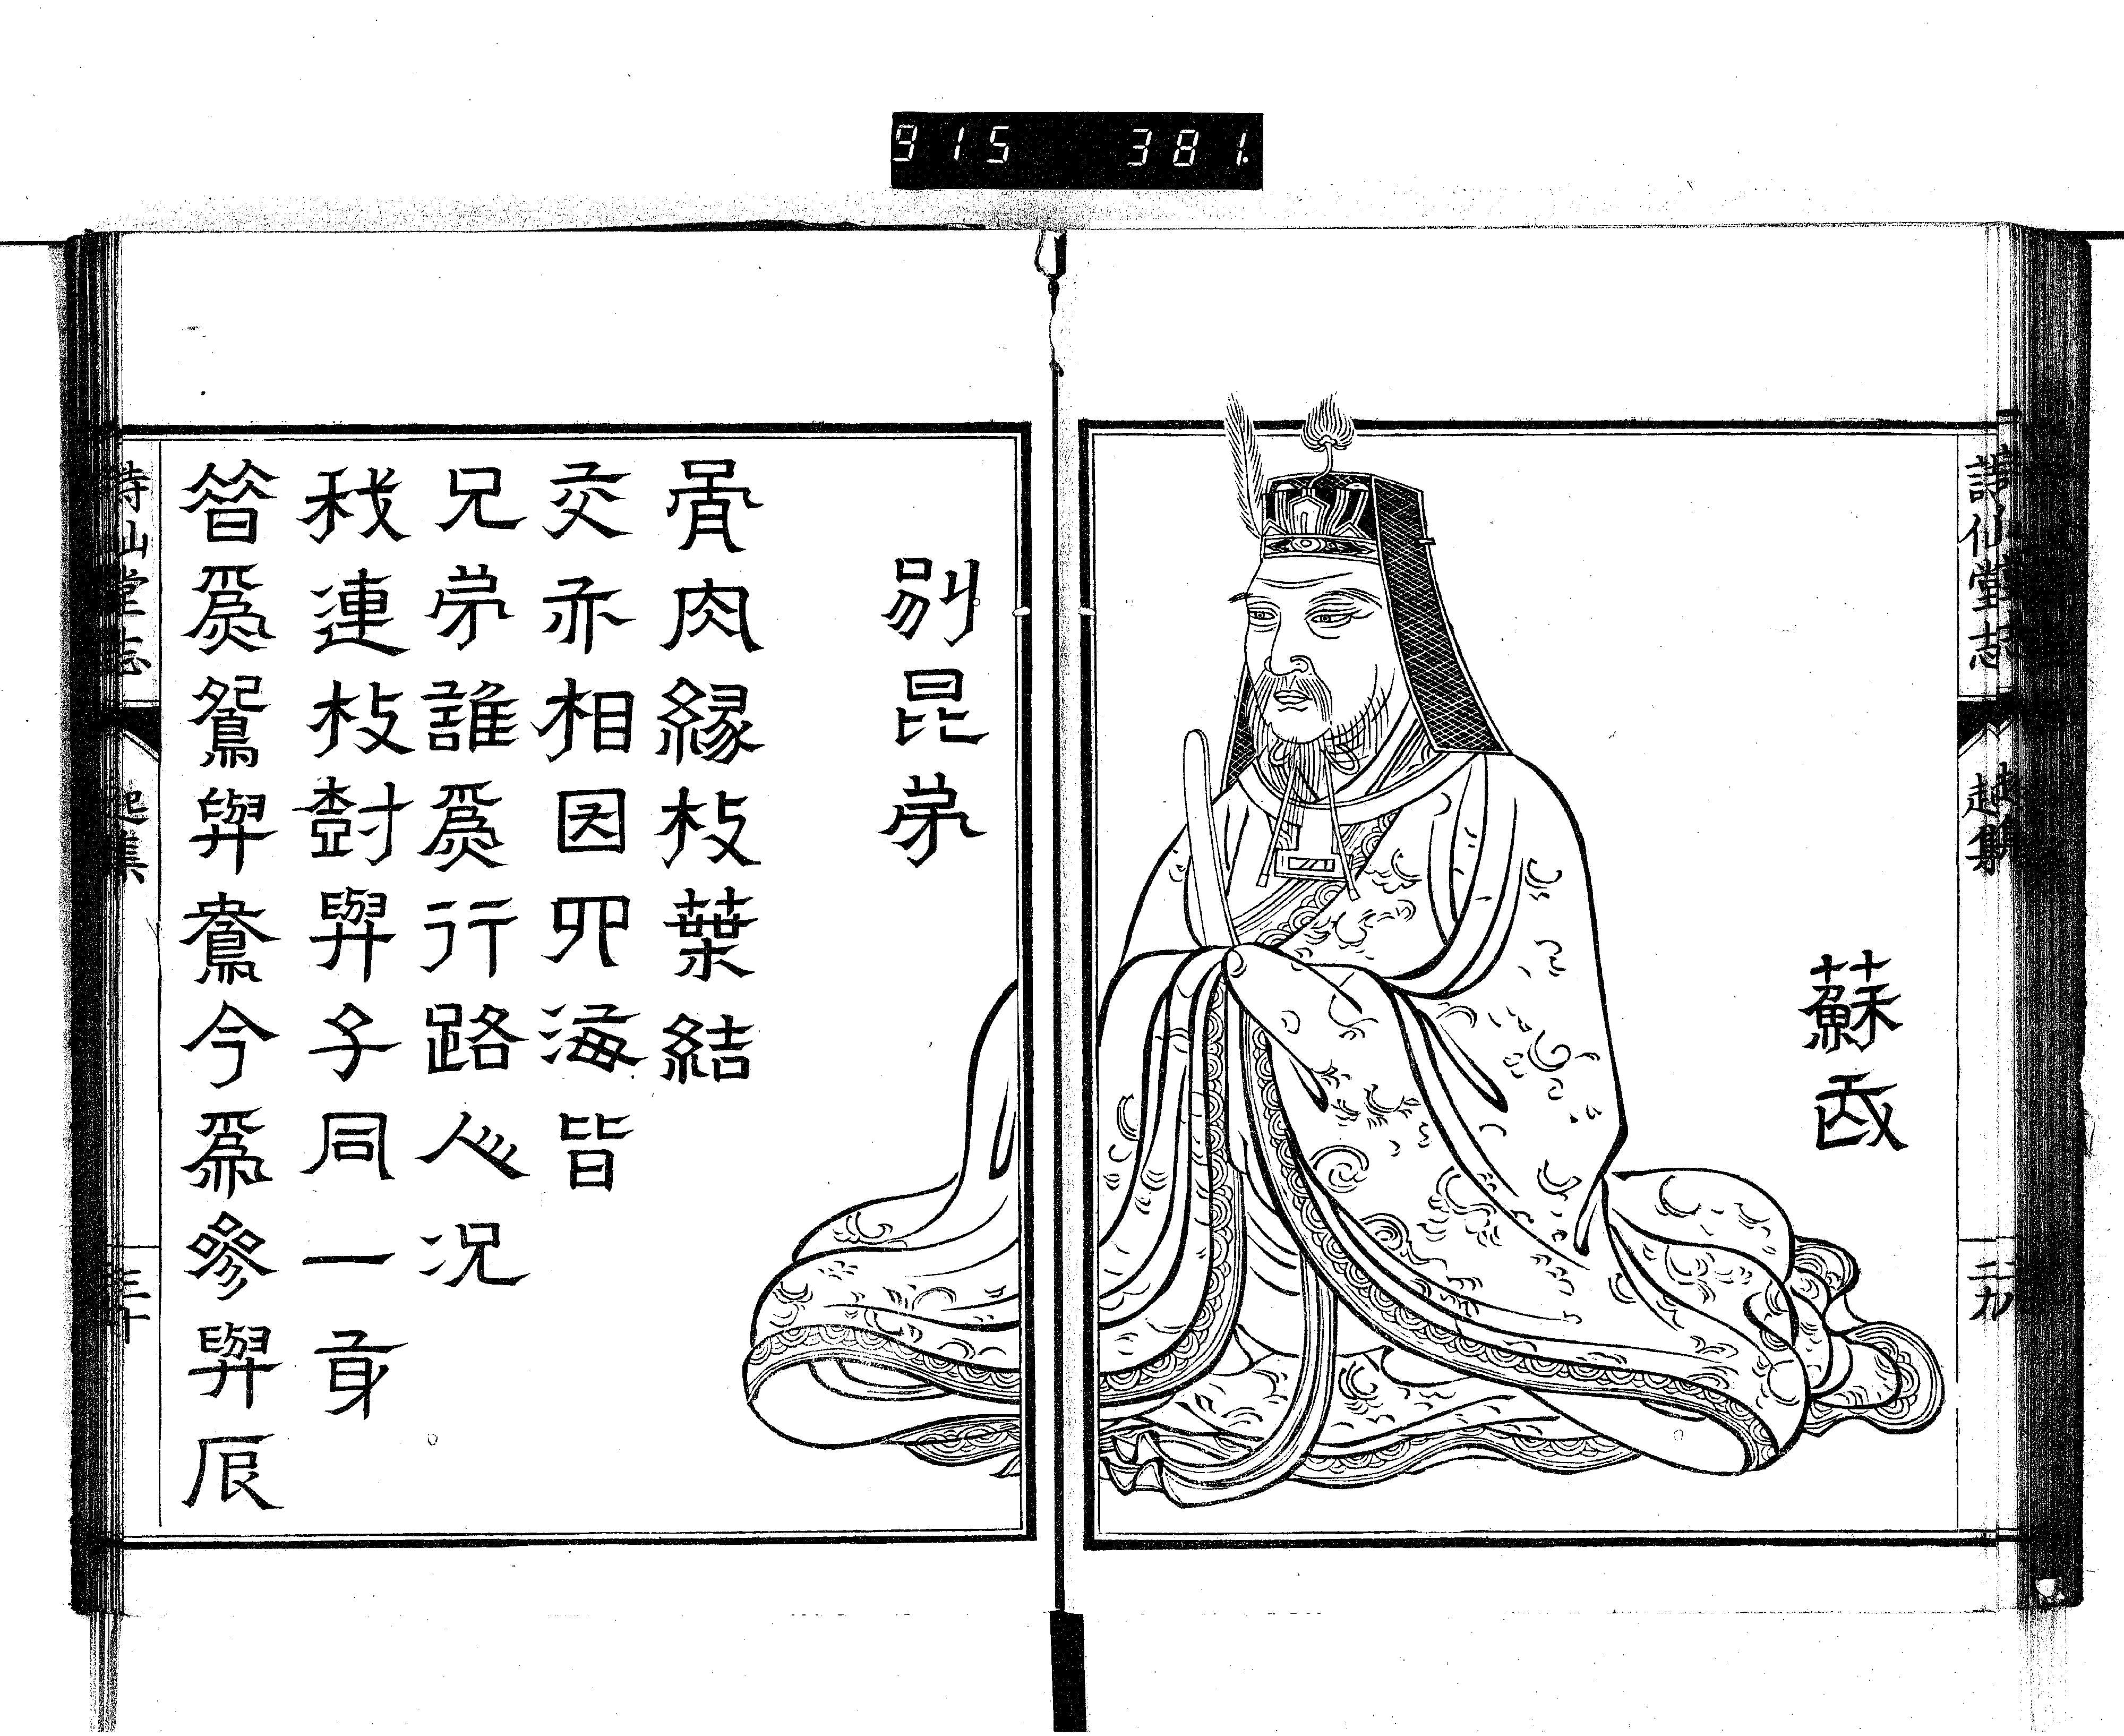 915 381.
詩仙堂志
起集
二九
蘇武
別昆弟
骨肉縁枝葉結
交亦相因四海皆
兄弟誰爲行路人況
我連枝樹與子同一身
昔爲鴛與鴦今爲參與辰
詩仙堂志
起集
三十